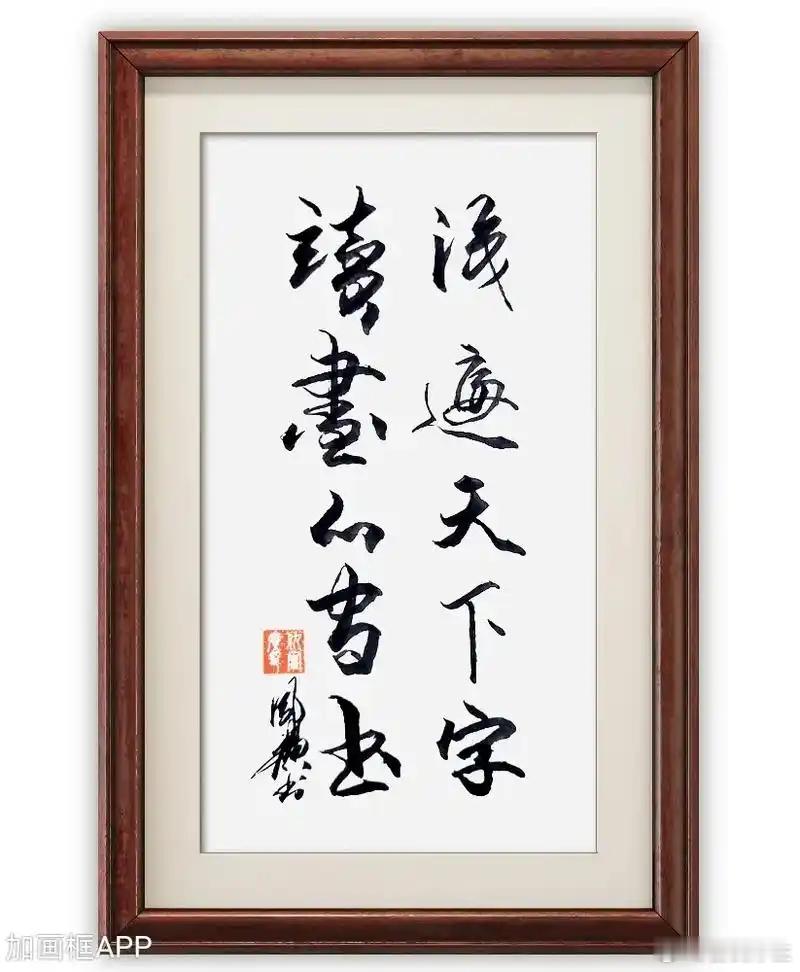 識遍天下字
讀盡人間書
加画框APP